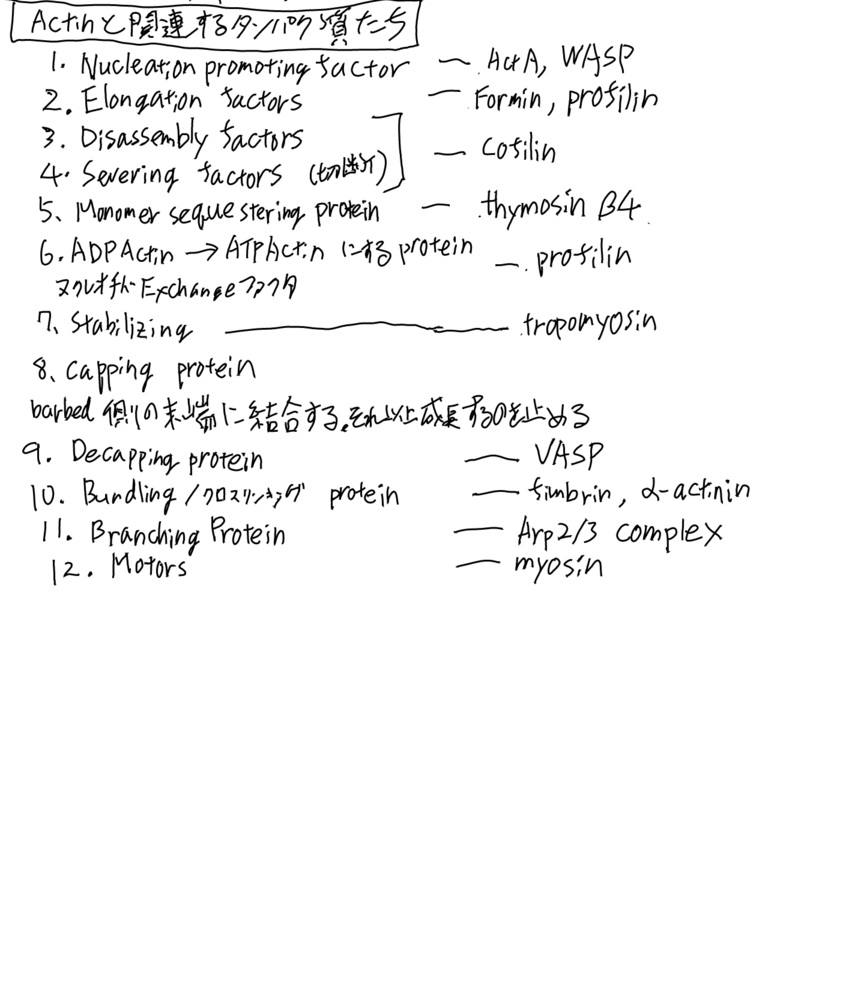 Actinと関連するタンパク質たち
1. Nucleation promoting factor — ActA, WASP
2. Elongation factors — Formin, profilin
3. Disassembly factors
4. Severing factors (切断) — Cofilin
5、Monomer sequestering protein — thymosin β4
6. ADPActin → ATPActin にする protein — profilin
ヌクレオチド Exchangeファクタ
7、Stabilizing — tropomyosin
8、Capping protein
barbed 側の末端に結合する。それ以上成長するのを止める
9. Decapping protein — VASP
10. Bundling / クロスリンキング protein — fimbrin, α-actinin
11. Branching Protein — Arp2/3 complex
12. Motors — myosin